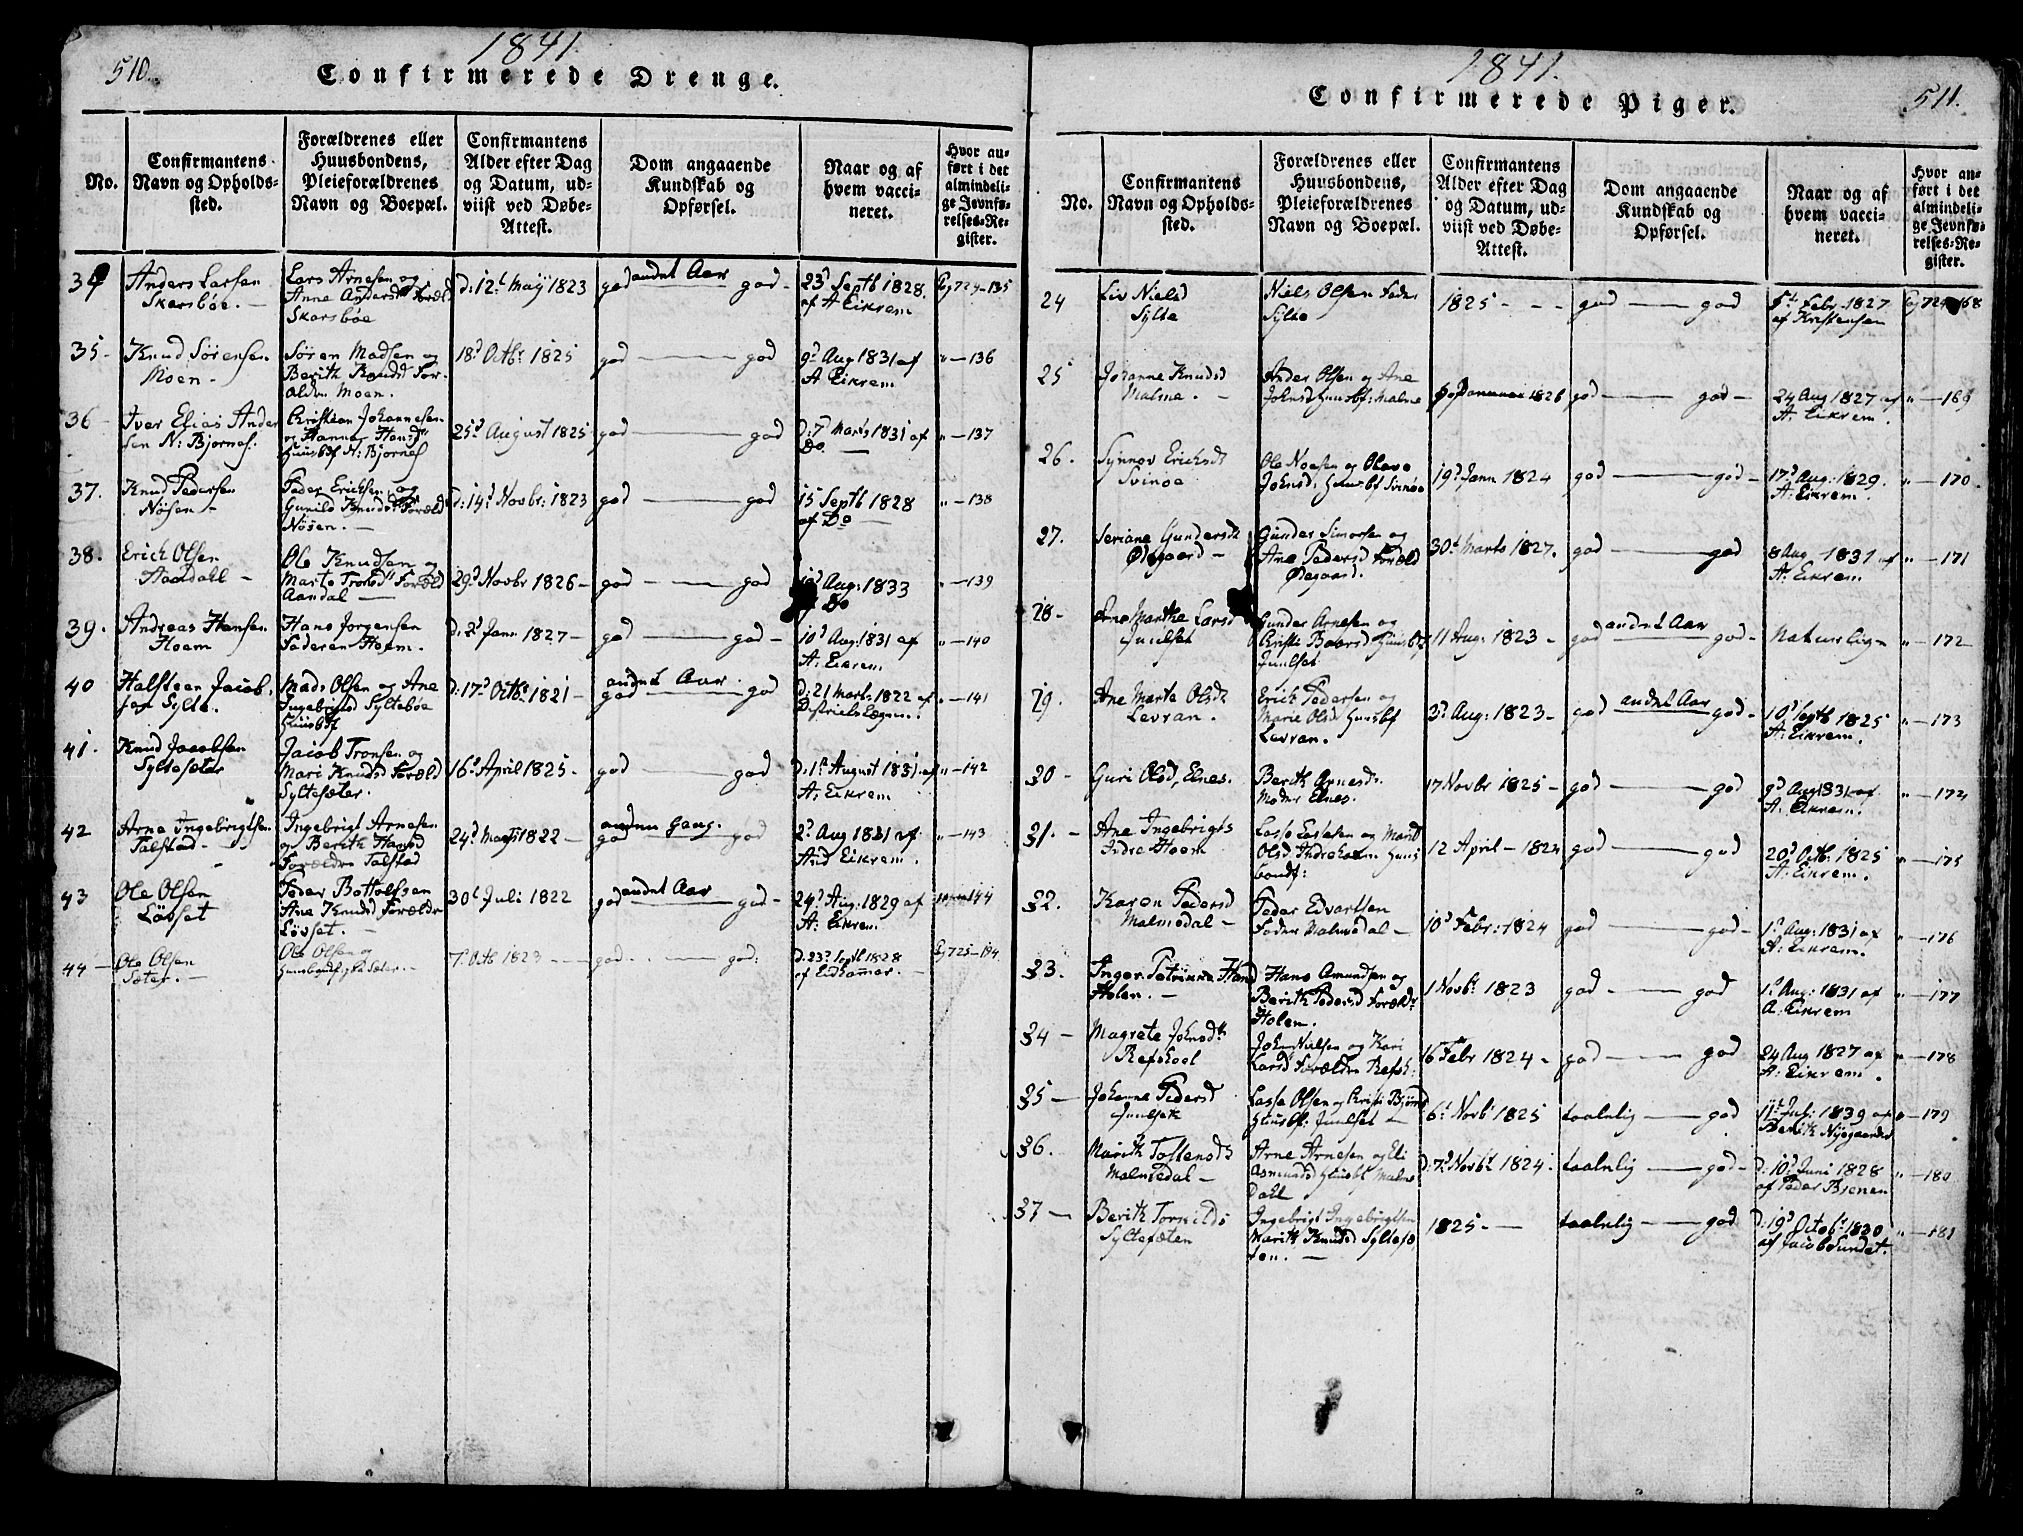 510.
1841
Confirmerede Drenge.
No.
Confirmantens Navn og Opholds-sted.
Forældrenes eller Huusbondens, Pleieforældrenes Navn og Boepæl.
Confirmantens Alder efter Dag og Datum, ud-viist ved Døbe-Attest.
Dom angaaende Kundskab og Opførsel.
Naar og af hvem vacci-neret.
Hvor an-ført i det almindeli-ge Jevnfø-relses-Re-gister.
34 Anders Larsen Skarsbøe. Lars Arnesen og Anne Andersd Foræld Skarsbøe D: 12t Maij 1823 god andet Aar god 23d Septb 1828. af A Eikrem Pg 724-135
35 Knud Sørensen Moen Søren Madsen og Berith Knudsd For- Moen. 18d Octbr 1825 god god 9d Aug 1831 af A Eikrem "-136
36 Iver Elias Ander sen N: Bjørnes. Christian Johannesen og Hanna Hansd Huusbf N: Bjørnes 25d August 1825 god god D: 7d Marts 1831 af Do "-137
37. Knud Pedersen Nøisen Peder Ericksen og Gunild Knudsd Foræld Nøsen. D: 14d Novbr: 1823 god god 15 Septb 1828 af Do "-138
38. Erick Olsen Aandahl Ole Knudsen og Marte Tronsd Foræld Aandal 29d Novbr 1826 god god Aug: 1833 af Do "-139
39. Andreas Hansen Hoem Hans Jørgensen Faderen Hoem. D: 2d Jann 1827 god god 10d Aug: 1831 af A: Eikrem "-140
40 Halsteen Jacob. Sylte. Mads Olsen og Ane Ingebrigtsd Syltebøe Huusbf D: 17d Octb: 1821 andet Aar. god god D: 21 Mart: 1822 af Districts Lægen. "-141
41. Knud Jacobsen Syltesæter Jacob Tronsen og Mari Knudsd Foræld Syltesæter. 16d April 1825 god god D: 1d August 1831 af A: Eikrem "-142
42 Arne Ingebrigtsen Talstad Ingebrigt Arnesen og Berith Hansd Forældre Talstad 24d Marts 1822 anden Gang. god god 2d Aug 1831 af And Eikrem. "-143
43 Ole Olsen Løvset Peder Bottolfsen Ane Knudsd Forældr Løvset. 30t Juli 1822 god andet Aar god 24d Aug: 1829 af A: Eikrem 144
44 Ole Olsen Sæter. Ole Olsen og Sæter. 7d Octb 1823 god god: D. 23d Septb 1828 af Pg 725-194
511.
1841.
Confirmerede Piger.
No.
Confirmantens Navn og Opholds-sted.
Forældrenes eller Huusbondens, Pleieforældrenes Navn og Boepæl.
Confirmantens Alder efter Dag og Datum, ud-viist ved Døbe-Attest.
Dom angaaende Kundskab og Opførsel.
Naar og af hvem vacci-neret.
Hvor an-ført i det almindeli-ge Jevnfø-relses-Re-gister.
24 Liv Nielsd Sylte Niels Olsen Fader Sylte 1825 god god 5t Febr. 1827 af Kristensen Pg 724-168
25 Johanne Knudsd Malme. Ander Olsen og Ane Johnsd Huusbf: Malme Januar 1826 god god 24 Aug 1827 af A: Eikrem. "-169
26. Synnøv Ericksdt Svinøe Ole Noesen og Olave Johnsd Huusbf Svinøe 19d Jann 1824 god god 17d Aug: 1829. A: Eikrem. "-170
27. Seriane Gundersdt Ødegaard Gunder Simonsen og Ane Pedersd Foræld Ødegaard. 30t Marts 1827. god god 8 Aug 1831 af A: Eikrem "-171
28 Marthe Larsd Juulset Gunder Arnesen og Christi Baarsd Huusbf Juulset 11 Aug: 1823 god andet Aar god Naturlig "-172
29. Ane Marte Olsdt Levran. Erick Pedersen og Marie Olsd Huusbf Levran. 3d Aug: 1823 god andet Aar god 10d Septb 1825 A: Eikrem. "-173
30 Guri Olsd, Elnes. Berith Arnesdt Moder Elnes. 17 Novbr 1825 god god 9d Aug 1831 af A. Eikrem. "-174
31. Ane Ingebrigts Indre Hoem Lasse Lassesen og Marit Olsd Indrehoem Huus bondf: 12 April 1824 god god 20d Octb: 1825 A: Eikrem. "-175
32. Karen Pedersd Malmedal Peder Edvartsen Fader Malmedal 10d Febr: 1824 god god 1d Aug: 1831 af A: Eikrem. "-176
33. Inger Petrikka Hansd Holen. Hans Amundsen og Berith Pedersd Forældr Holen. 1 Novbr 1823 god god 1d Aug: 1831 af A: Eikrem "-177
34 Magrete Johnsdtt Refskool John Nielsen og Kari Larsd Forældre Refsk: 16 Febr 1824 god god 24 Aug 1827 af A: Eikrem. "-178
35 Johanna Pedersd Juulset Lasse Olsen og Christi Bjørns Huusbf: Juulset 6t Novbr 1825 taalelig god 11t Juli 1839 af Berith Nyegaarder "-179
36. Marith Tostensdt Malmedal Arne Arnesen og Eli Asmundsd Huusbf Malme Dahl D: 7d Novbr 1824. taalelig god D: 10d Juni 1828 af Peder Bjenen "-180
37 Berith Torkilds Syltesæten Ingebrigt Ingebrigtsen Marith Knudsd Syltesæ ten. 1825 taalelig god D: 19d Octobr 1820 af Jacob Sundet. "-181